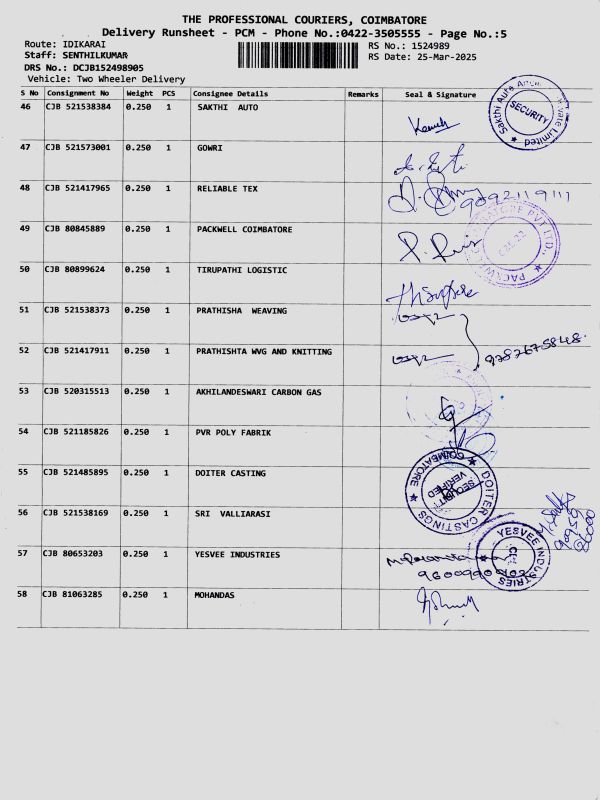 THE PROFESSIONAL COURIERS, COIMBATORE
Delivery Runsheet - PCM - Phone No.:0422-3505555 - Page No.:5
Route: IDIKARAI
RS No.: 1524989
Staff: SENTHILKUMAR
RS Date: 25-Mar-2025
DRS No.: DCJB152498905
Vehicle: Two Wheeler Delivery
S No Consignment No Weight PCS Consignee Details Remarks Seal & Signature
46 CJB 521538384 0.250 1 SAKTHI AUTO
Sakthi Auto Private Limited SECURITY
47 CJB 521573001 0.250 1 GOWRI
48 CJB 521417965 0.250 1 RELIABLE TEX
9092119111
49 CJB 80845889 0.250 1 PACKWELL COIMBATORE
PVT LTD.,
50 CJB 80899624 0.250 1 TIRUPATHI LOGISTIC
51 CJB 521538373 0.250 1 PRATHISHA WEAVING
52 CJB 521417911 0.250 1 PRATHISHTA WVG AND KNITTING
9787675848.
53 CJB 520315513 0.250 1 AKHILANDESWARI CARBON GAS
54 CJB 521185826 0.250 1 PVR POLY FABRIK
55 CJB 521485895 0.250 1 DOITER CASTING
DOITER CASTINGS COIMBATORE SECURITY VERIFIED
56 CJB 521538169 0.250 1 SRI VALLIARASI
57 CJB 80653203 0.250 1 YESVEE INDUSTRIES
YESVEE INDUSTRIES
58 CJB 81063285 0.250 1 MOHANDAS